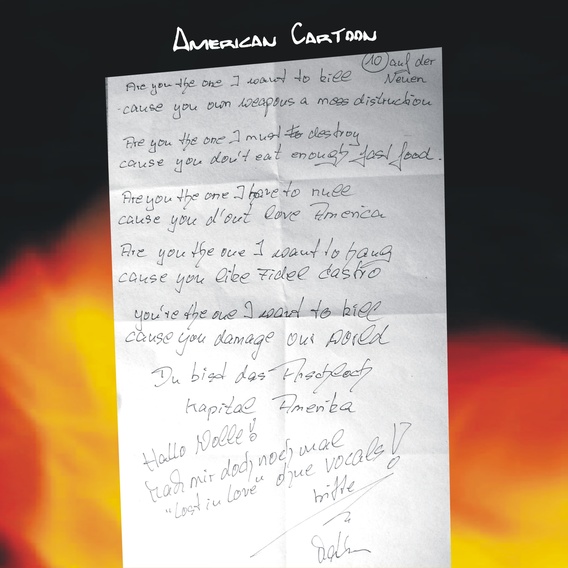 American Cartoon
10 auf der
Neuen
Are you the one I want to kill
cause you own weapons a mess distruction
Are you the one I must to destroy
cause you don't eat enough fast food.
Are you the one I have to null
cause you d'ont love America
Are you the one I want to hang
cause you like Fidel Castro
you're the one I want to kill
cause you damage our world
Du bist das Arschloch
Kapital Amerika
Hallo Wolle!
Mach mir doch noch mal
"Lost in Love" ohne vocals!
bitte